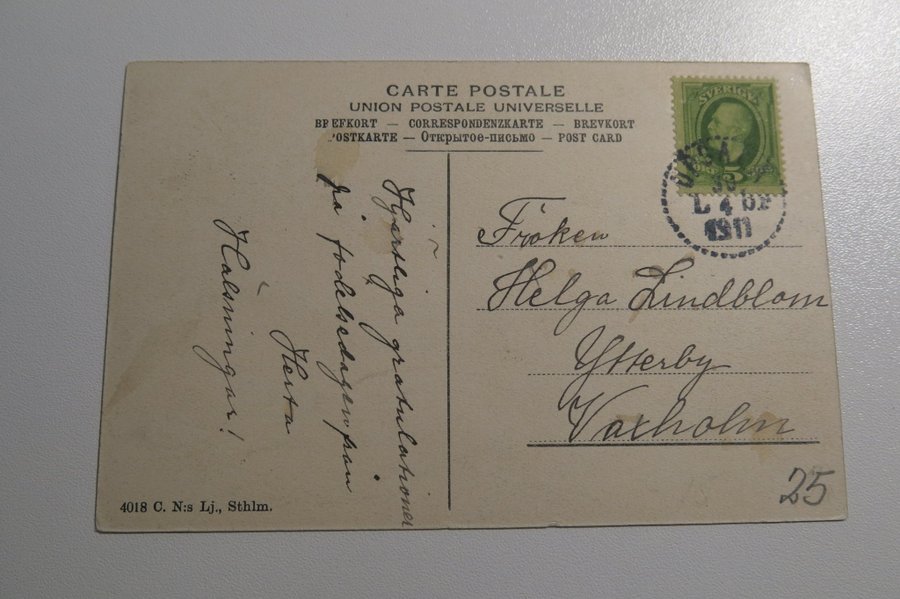 CARTE POSTALE
UNION POSTALE UNIVERSELLE
BREFKORT — CORRESPONDENZKARTE — BREVKORT
POSTKARTE — Открытое-письмо — POST CARD
SVERIGE
5
L 4 BP
1911
Hjärtliga gratulationer
på födelsedagen från
Herta
Hälsningar!
Fröken
Helga Lindblom
Ytterby
Vaxholm
25
4018 C. N:s Lj., Sthlm.